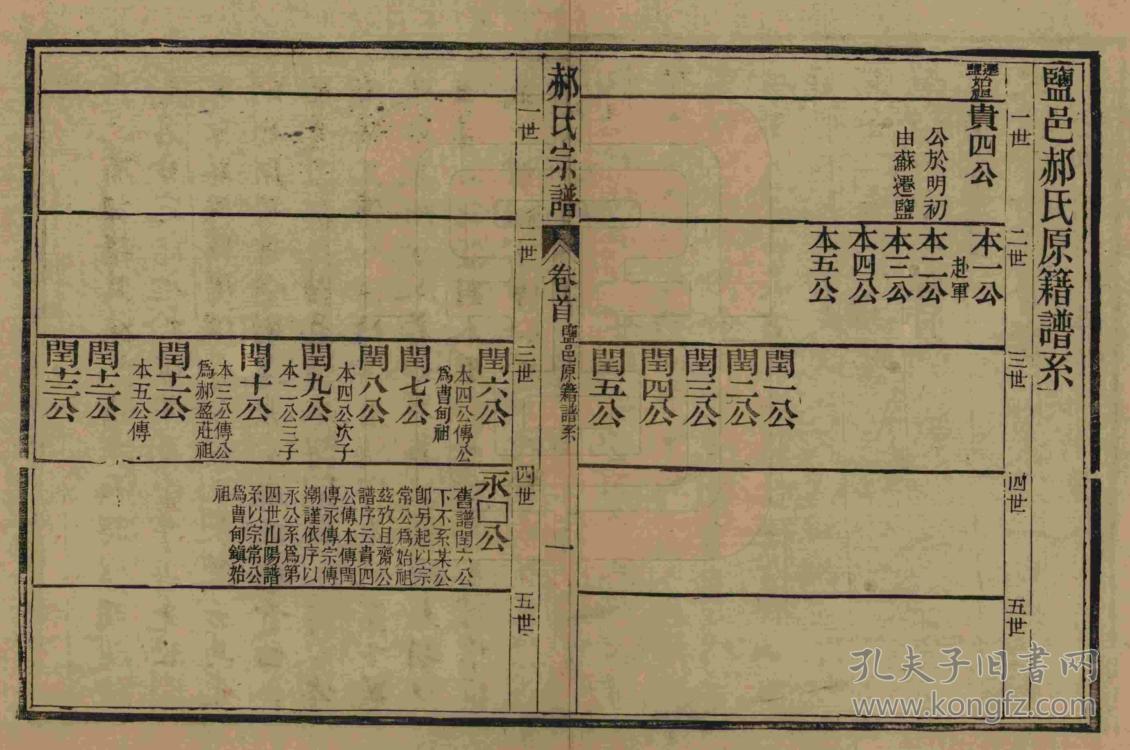 鹽邑郝氏原籍譜系
一世
遷鹽始祖
貴四公
公於明初
由蘇遷鹽
二世
本一公
赴軍
本二公
本三公
本四公
本五公
三世
閏一公
閏二公
閏三公
閏四公
閏五公
四世
五世
郝氏宗譜
卷首
鹽邑原籍譜系
一
一世
二世
三世
閏六公
本四公傳公
爲曹甸祖
閏七公
閏八公
本四公次子
閏九公
本二公三子
閏十公
本三公傳公
爲郝盈莊祖
閏十一公
本五公傳
閏十二公
閏十三公
四世
永□公
舊譜閏六公
下不系某公
卽另起以宗
常公爲始祖
茲攷且齋公
譜序云貴四
公傳本傳閏
傳永傳宗傳
潮謹依序以
永公系爲第
四世山陽譜
系以宗常公
爲曹甸鎭始
祖
五世
孔夫子旧书网
www.kongfz.com